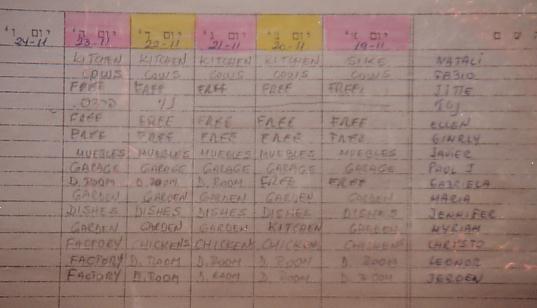 יום ו' יום ה' יום ד' יום ג' יום ב' יום א' שם
24-11 23-11 22-11 21-11 20-11 19-11
KITCHEN KITCHEN KITCHEN KITCHEN SIKE NATALI
COWS COWS COWS COWS COWS FABIO
FREE FREE FREE FREE FREE JITTE
FREE FREE FREE FREE FREE ELLEN
FREE FREE FREE FREE FREE
MUEBLES MUEBLES MUEBLES MUEBLES MUEBLES JAVIER
GARAGE GARAGE GARAGE GARAGE GARAGE PAUL J
D. ROOM D. ROOM D. ROOM FREE FREE GABRIELA
GARDEN GARDEN GARDEN GARDEN GARDEN MARIA
DISHES DISHES DISHES DISHES DISHES JENNIFER
GARDEN GARDEN GARDEN KITCHEN GARDEN MYRIAM
FACTORY CHICKENS CHICKENS CHICKENS CHICKENS CHRISTO
FACTORY D. ROOM D. ROOM D. ROOM D. ROOM LEONOR
FACTORY D. ROOM D. ROOM D. ROOM D. ROOM JEROEN